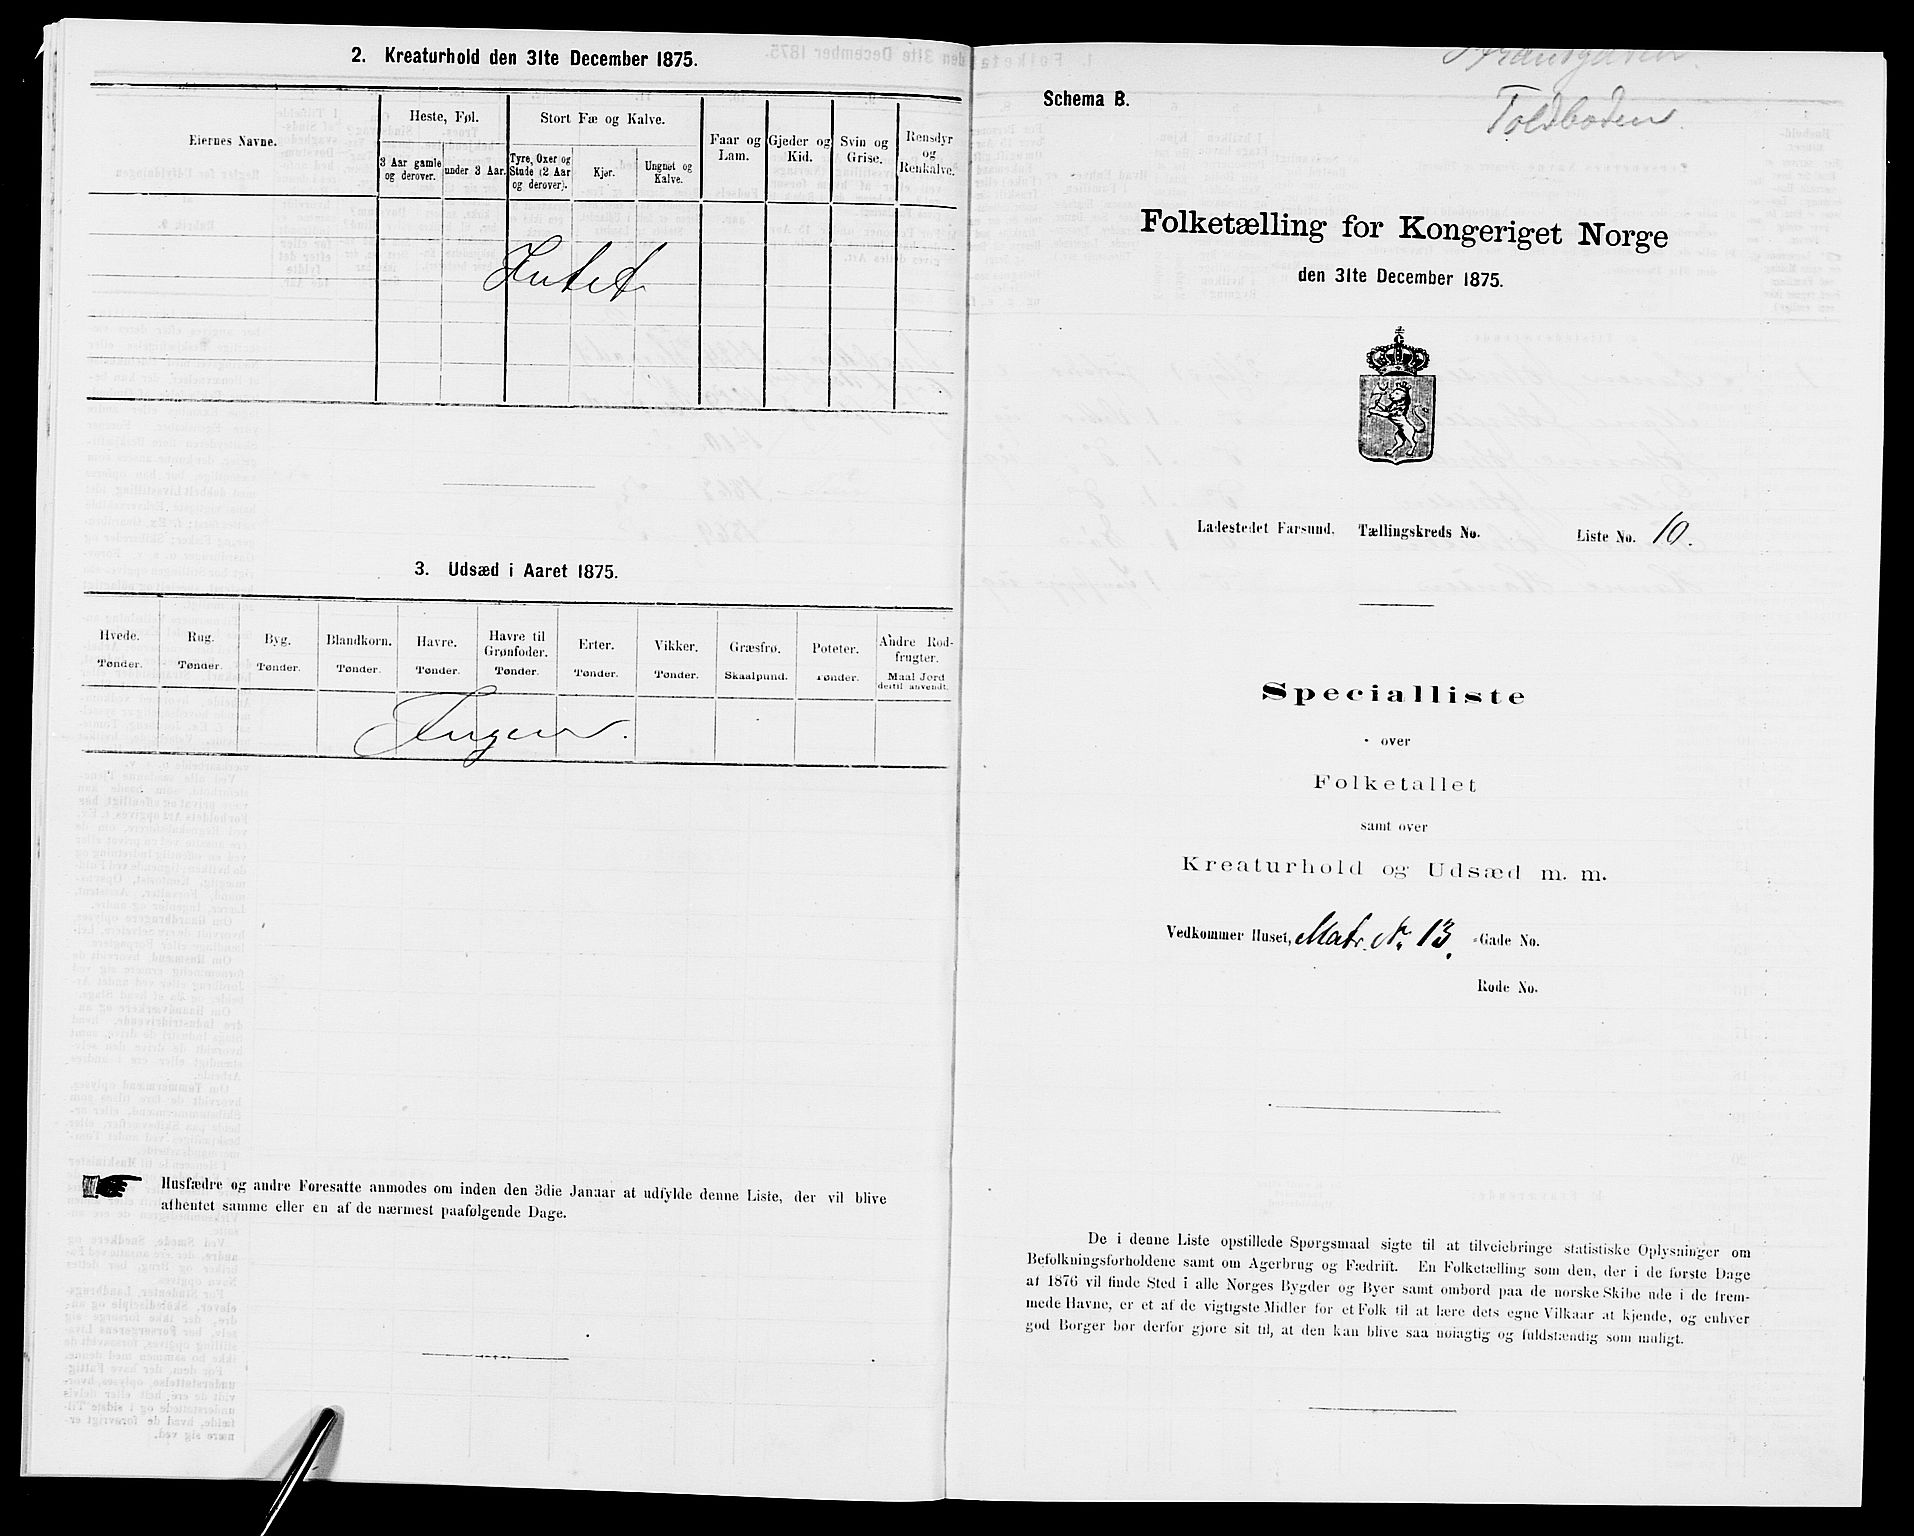 2. Kreaturhold den 31te December 1875.
Eiernes Navne.
Heste, Føl.
Stort Fæ og Kalve.
Faar og Lam.
Gjeder og Kid.
Svin og Grise.
Rensdyr og Renkalve.
3 Aar gamle og derover.
under 3 Aar.
Tyre, Oxer og Stude (2 Aar og derover).
Kjør.
Ungnøt og Kalve.
Intet
3. Udsæd i Aaret 1875.
Hvede.
Rug.
Byg.
Blandkorn.
Havre.
Havre til Grønfoder.
Erter.
Vikker.
Græsfrø.
Poteter.
Andre Rodfrugter.
Tønder.
Tønder.
Tønder.
Tønder.
Tønder.
Tønder.
Tønder.
Tønder.
Skaalpund.
Tønder.
Maal Jord dertil anvendt.
Ingen.
Husfædre og andre Foresatte anmodes om inden den 3die Januar at udfylde denne Liste, der vil blive
afhentet samme eller en af de nærmest paafølgende Dage.
Toldboden.
Schema B.
Folketælling for Kongeriget Norge
den 31te December 1875.
Ladestedet Farsund. Tællingskreds No. Liste No. 10.
Specialliste
over
Folketallet
samt over
Kreaturhold og Udsæd m. m.
Vedkommer Huset, Matr. No. 13. -Gade No.
Rode No.
De i denne Liste opstillede Spørgsmaal sigte til at tilveiebringe statistiske Oplysninger om
Befolkningsforholdene samt om Agerbrug og Fædrift. En Folketælling som den, der i de første Dage
af 1876 vil finde Sted i alle Norges Bygder og Byer samt ombord paa de norske Skibe ude i de frem-
mede Havne, er et af de vigtigste Midler for et Folk til at lære dets egne Vilkaar at kjende, og enhver
god Borger bør derfor gjøre sit til, at den kan blive saa nøiagtig og fuldstændig som muligt.